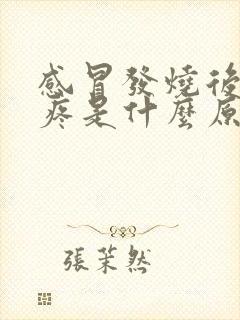 感冒發燒後
疼是什麼原
張茉然